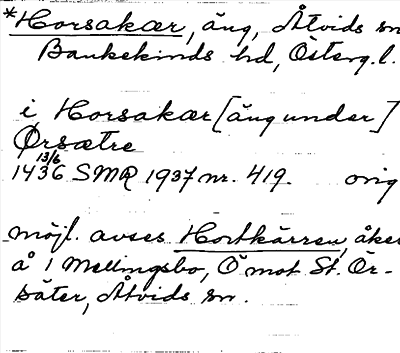 *Horsakær, äng, Åtvids sn
Bankekinds hd, Österg. l.
i Horsakær [äng under]
Ørsætre
13/6
1436 SMR 1937 nr. 419. orig
möjl. avses Hortkärren, åker
å 1 Mellingsbo, Ö mot St. Ör-
säter, Åtvids sn.